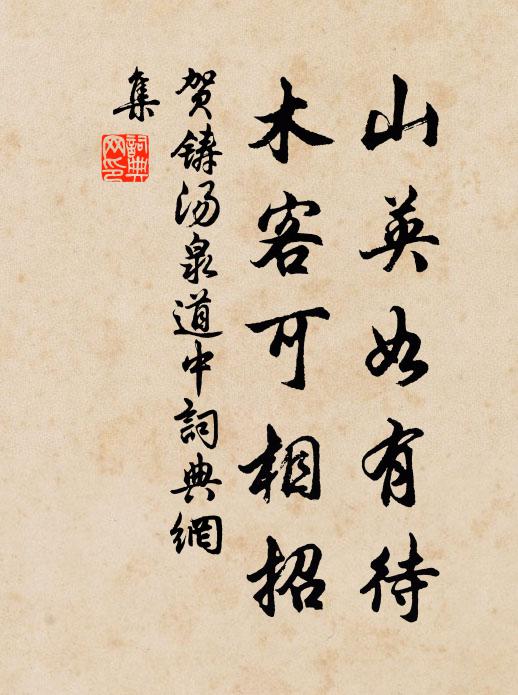 山英如有待
木客可相招
贺铸汤泉道中詞典網
集
詞典
网印